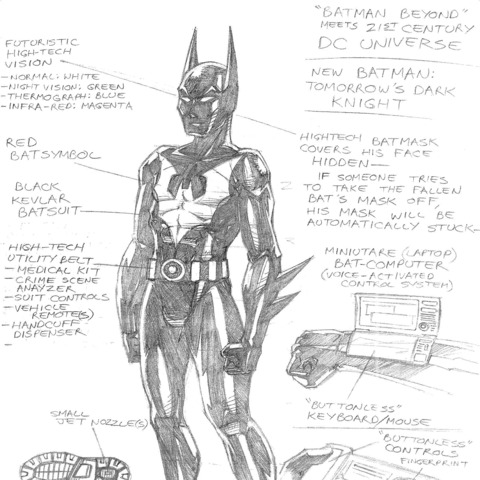 "BATMAN BEYOND"
MEETS 21ST CENTURY
DC UNIVERSE
NEW BATMAN:
TOMORROW'S DARK
KNIGHT
FUTURISTIC
HIGH-TECH
VISION
-NORMAL: WHITE
-NIGHT VISION: GREEN
-THERMOGRAPH: BLUE
-INFRA-RED: MAGENTA
RED
BATSYMBOL
BLACK
KEVLAR
BATSUIT
HIGH-TECH
UTILITY BELT
- MEDICAL KIT
- CRIME SCENE
ANAYZER
- SUIT CONTROLS
- VEHICLE
REMOTE(S)
- HANDCUFF
DISPENSER
-
SMALL
JET NOZZLE(S)
HIGHTECH BATMASK
COVERS HIS FACE
HIDDEN—
IF SOMEONE TRIES
TO TAKE THE FALLEN
BAT'S MASK OFF,
HIS MASK WILL BE
AUTOMATICALLY STUCK-
MINIUTARE (LAPTOP)
BAT-COMPUTER
(VOICE-ACTIVATED
CONTROL SYSTEM)
"BUTTONLESS"
KEYBOARD/MOUSE
"BUTTONLESS"
CONTROLS
FINGERPRINT